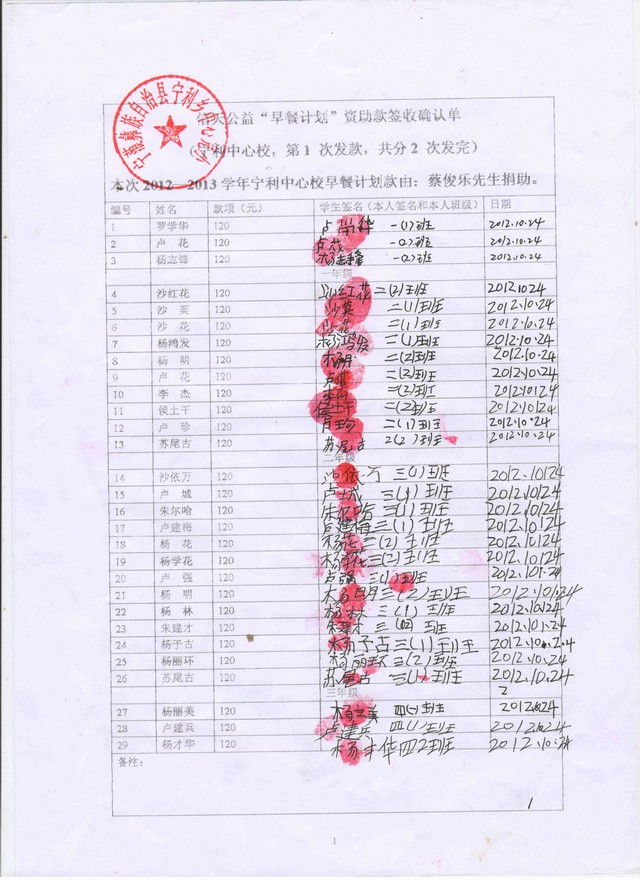 宁蒗彝族自治县宁利乡中心完小
公益“早餐计划”资助款签收确认单
（宁利中心校，第 1 次发款，共分 2 次发完）
本次 2012—2013 学年宁利中心校早餐计划款由：蔡俊乐先生捐助。
编号 姓名 款项（元） 学生签名（本人签名和本人班级） 日期
1 罗学华 120 一(1)班 2012.10.24
2 卢 花 120 卢花 一(2)班 2012.10.24
3 杨志锋 120 杨志锋 一(2)班 2012.10.24
一年级
4 沙红花 120 沙红花 二(2)班 2012.10.24
5 沙 英 120 沙英 二(1)班 2012.10.24
6 沙 花 120 沙花 二(1)班 2012.10.24
7 杨鸿发 120 杨鸿发 二(1)班 2012.10.24
8 杨 明 120 杨明 二(2)班 2012.10.24
9 卢 花 120 卢花 二(2)班 2012.10.24
10 李 杰 120 二(2)班 2012.10.24
11 侯土干 120 侯土干 二(2)班 2012.10.24
12 卢 珍 120 卢珍 二(1)班 2012.10.24
13 苏尾古 120 苏尾古 2(2)班 2012.10.24
二年级
14 沙依万 120 沙依万 三(1)班 2012.10.24
15 卢 城 120 卢城 三(1)班 2012.10.24
16 朱尔哈 120 朱尔哈 三(1)班 2012.10.24
17 卢建梅 120 卢建梅 三(1)班 2012.10.24
18 杨 花 120 杨花 三(2)班 2012.10.24
19 杨学花 120 杨学花 三(2)班 2012.10.24
20 卢 强 120 卢强 三(1)班 2012.10.24
21 杨 明 120 杨明 三(2)班 2012.10.24
22 杨 林 120 杨林 三(1)班 2012.10.24
23 朱建才 120 朱建才 三 班 2012.10.24
24 杨子古 120 杨子古 三(1)班 2012.10.24
25 杨丽环 120 杨丽环 三(2)班 2012.10.24
26 苏尾古 120 苏尾古 三(1)班 2012.10.24
三年级 2
27 杨丽美 120 四(1)班 2012.10.24
28 卢建兵 120 卢建兵 四(1)班 2012.10.24
29 杨才华 120 杨才华 四2班 2012.10.24
备注：
1
1